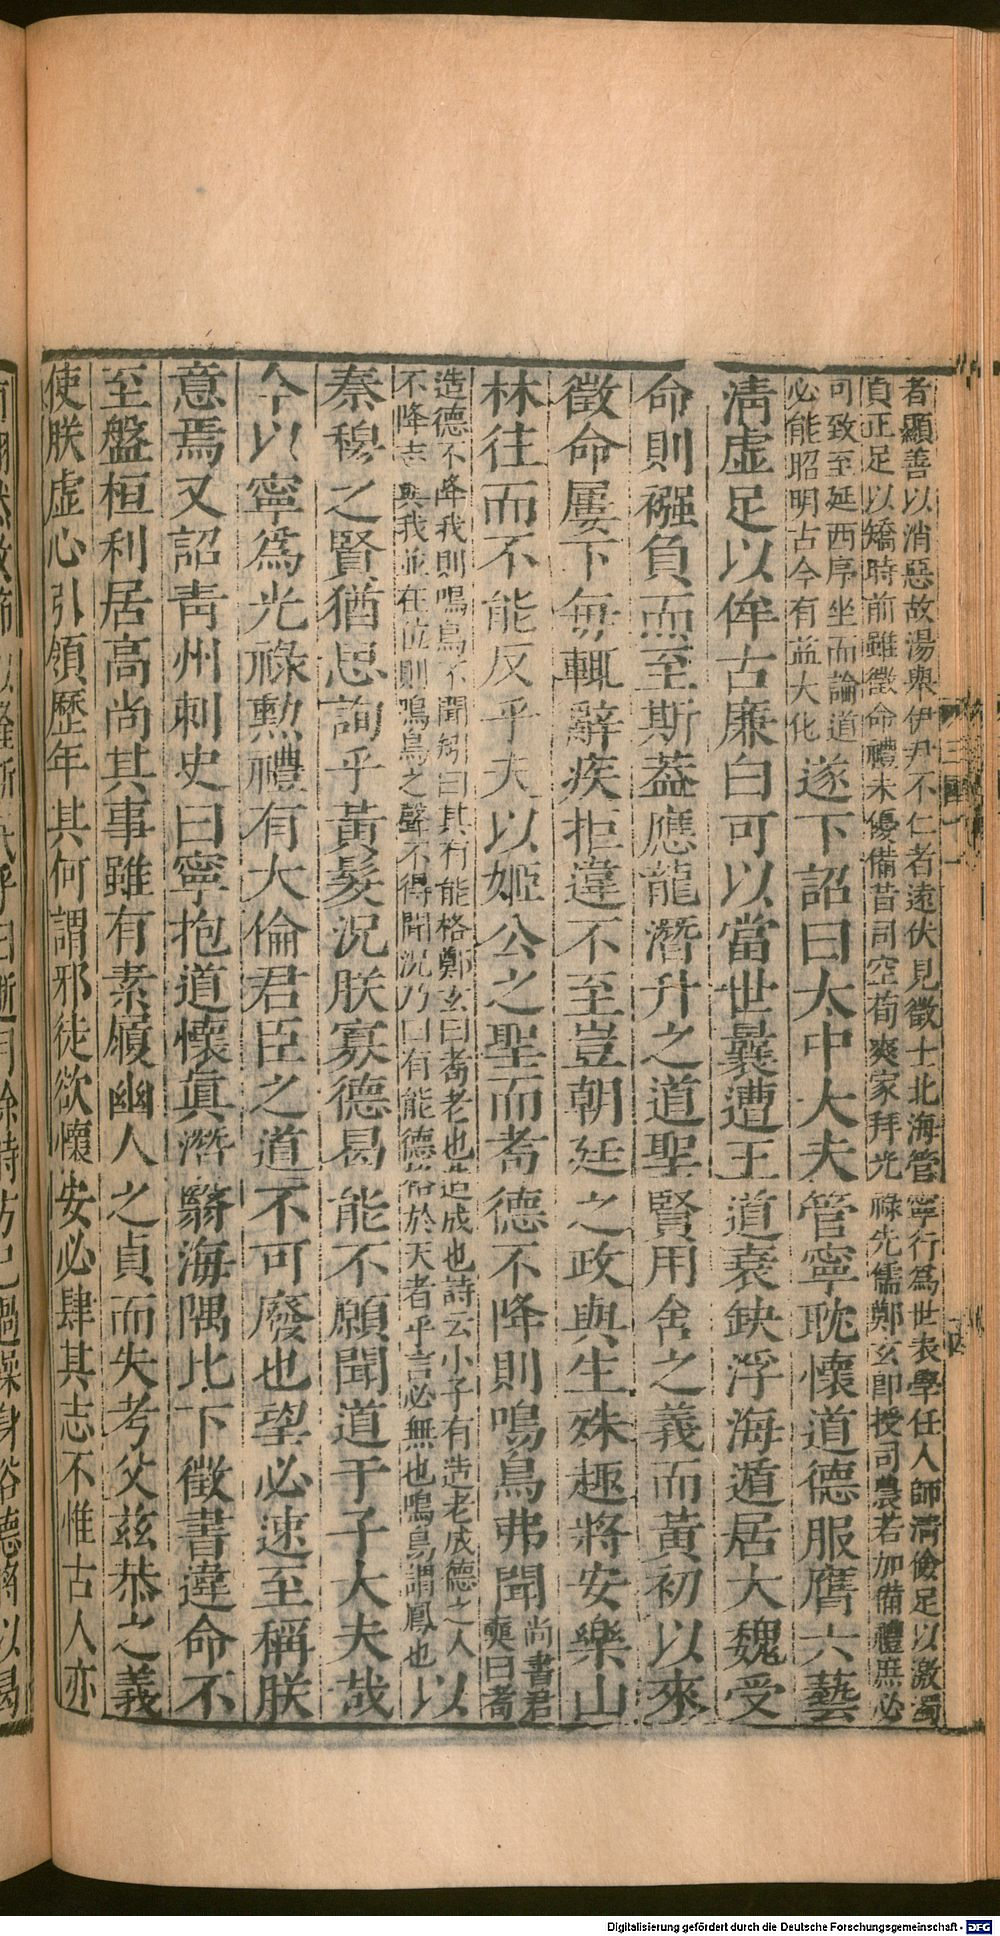 者顯善以消惡故湯舉伊尹不仁者遠伏見徵士北海管寧行爲世表學任人師清儉足以激濁
貞正足以矯時前雖徵命禮未優備昔司空荀爽家拜光祿先儒鄭玄即授司農若加備禮庶必
可致至延西序坐而論道
必能昭明古今有益大化
遂下詔曰太中大夫管寧耽懷道德服膺六藝
清虛足以侔古廉白可以當世曩遭王道衰缺浮海遁居大魏受
命則襁負而至斯葢應龍潛升之道聖賢用舍之義而黃初以來
徵命屢下每輒辭疾拒違不至豈朝廷之政與生殊趣將安樂山
林往而不能反乎夫以姬公之聖而耇德不降則鳴鳥弗聞
尚書君
奭曰耇
造德不降我則鳴鳥不聞矧曰其有能格鄭玄曰耇老也造成也詩云小子有造老成德之人
不降志與我並在位則鳴鳥之聲不得聞況乃曰有能德格於天者乎言必無也鳴鳥謂鳳也
以
秦穆之賢猶思詢乎黃髮況朕寡德曷能不願聞道于子大夫哉
今以寧爲光祿勲禮有大倫君臣之道不可廢也望必速至稱朕
意焉又詔靑州刺史曰寧抱道懷眞潛翳海隅比下徵書違命不
至盤桓利居高尚其事雖有素履幽人之貞而失考父兹恭之義
使朕虛心引領歷年其何謂邪徒欲懷安必肆其志不惟古人亦
Digitalisierung gefördert durch die Deutsche Forschungsgemeinschaft - DFG